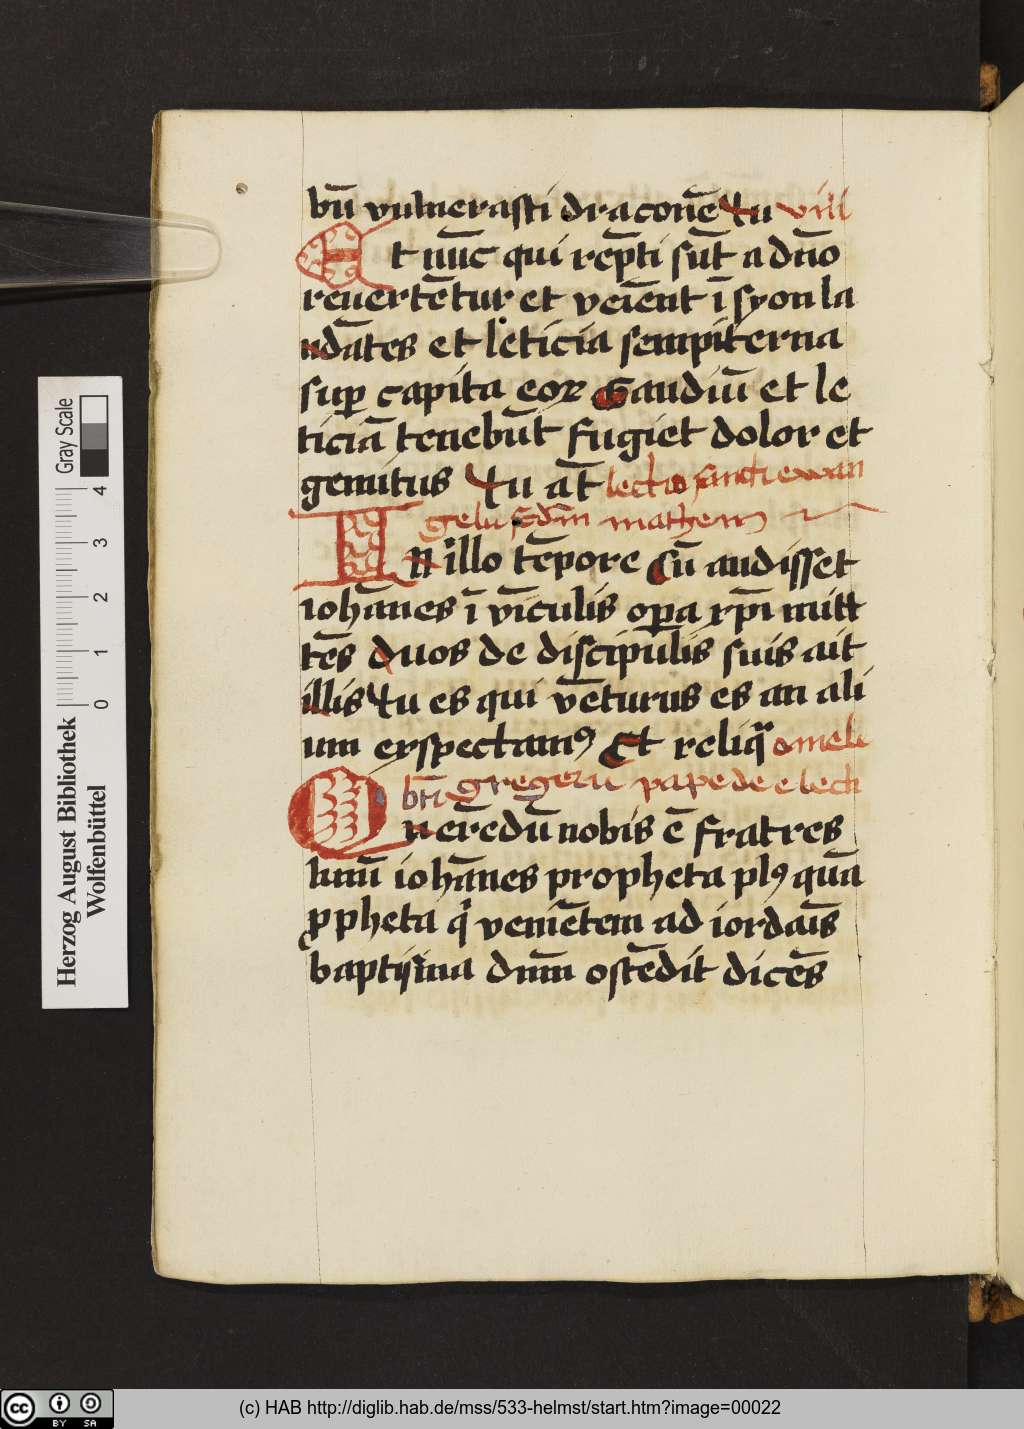 bū vulnerasti draconē tu viii
Et nūc qui rēpti sūt a dn̄o
reuertētur et veiēnt ī syon la
udātes et leticia sempiterna
suꝑ capita eoꝝ Gaudiū et le
ticiā tenebūt fugiet dolor et
gemitus Tu āt lectio sancti ewan
gelii scdm matheum
In illo tēpore Cū audisset
iohānes ī vīculis oꝑa xp̄i mitt
tēs duos de discipulis suis ait
illis tu es qui vēturus es an ali
um expectamꝰ Et reliqͣ omeli
bt̄i gregorii pape de e lecti
Querēdū nobis ē fratres
karissimi iohānes propheta plꝰ quā
ꝓpheta qͥ veniētem ad iordāis
baptisma dnm ostēdit dicēs
Herzog August Bibliothek
Wolfenbüttel
Gray Scale
0 1 2 3 4
cc BY SA
(c) HAB http://diglib.hab.de/mss/533-helmst/start.htm?image=00022